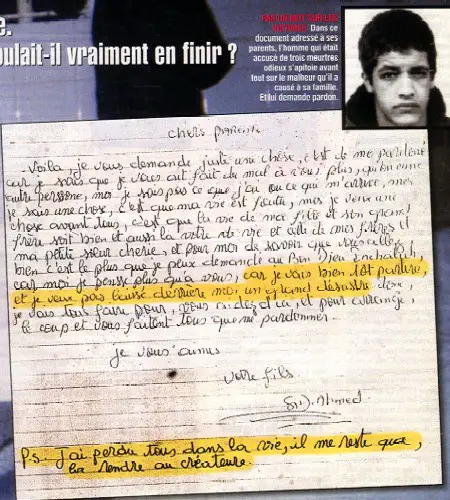 e.
oulait-il vraiment en finir ?
PAS UN MOT SUR LES
VICTIMES. Dans ce
document adressé à ses
parents, l'homme qui était
accusé de trois meurtres
odieux s'apitoie avant
tout sur le malheur qu'il a
causé à sa famille.
Et lui demande pardon.
chers parents
Voila, je vous demande juste une chose, c'est de me pardoné
car je sais que je vous ait fait du mal à vous plus, qu'en une
autre personne, moi je sais pas ce que j'ai ou ce qui m'arrive, mes
je sais une chose, c'est que ma vie est foutu, mes je veux une
chose avant tous, c'est que la vie de ma fille et son grand
frère soit bien et aussi la votre de vie et celle de mes frères et
ma petite soeur cherie, et pour moi de savoir que vous
bien c'est le plus que je peux demandé au Bon Dieu inchallah,
car moi je pense plus qu'a vous, car je vais bien tôt partire,
et je veux pas laissé derrière moi un grand désastre donc,
je vais tous faire pour, et pour arrangé,
le coup et vous tous que me pardonner.
je vous aimes
votre fils.
Ahmed
Ps. J'ai perdu tous dans la vie, il me reste qu'a,
la rendre au créateure.